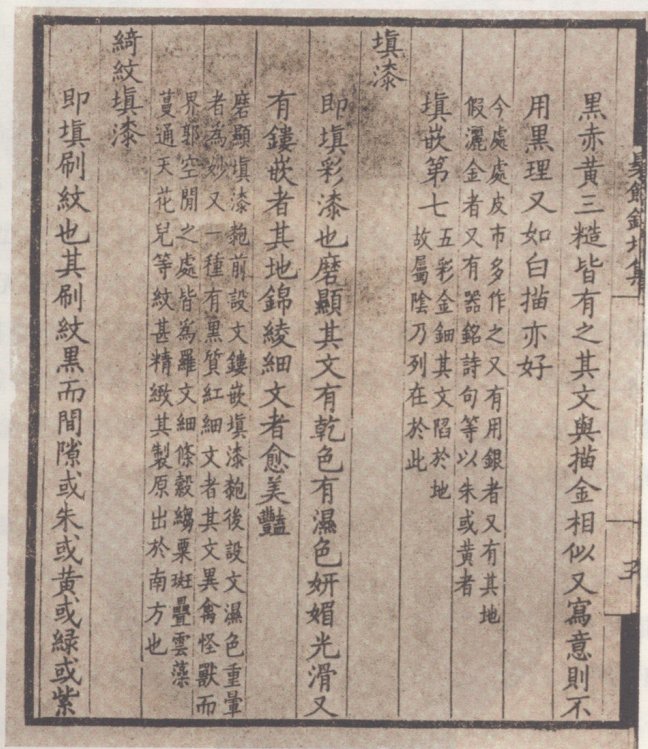 黑赤黃三糙皆有之其文與描金相似又寫意則不
用黑理又如白描亦好
今處處皮市多作之又有用銀者又有其地
假灑金者又有器銘詩句等以朱或黃者
填嵌第七
五彩金鈿其文陷於地
故屬陰乃列在於此
填漆
即填彩漆也磨顯其文有乾色有濕色妍媚光滑又
有鏤嵌者其地錦綾細文者愈美豔
磨顯填漆䰍前設文鏤嵌填漆䰍後設文濕色重暈
者為妙又一種有黑質紅細文者其文異禽怪獸而
界郭空閒之處皆為羅文細條縠縐粟斑疊雲藻
蔓通天花兒等紋甚精緻其製原出於南方也
綺紋填漆
即填刷紋也其刷紋黑而間隙或朱或黃或綠或紫